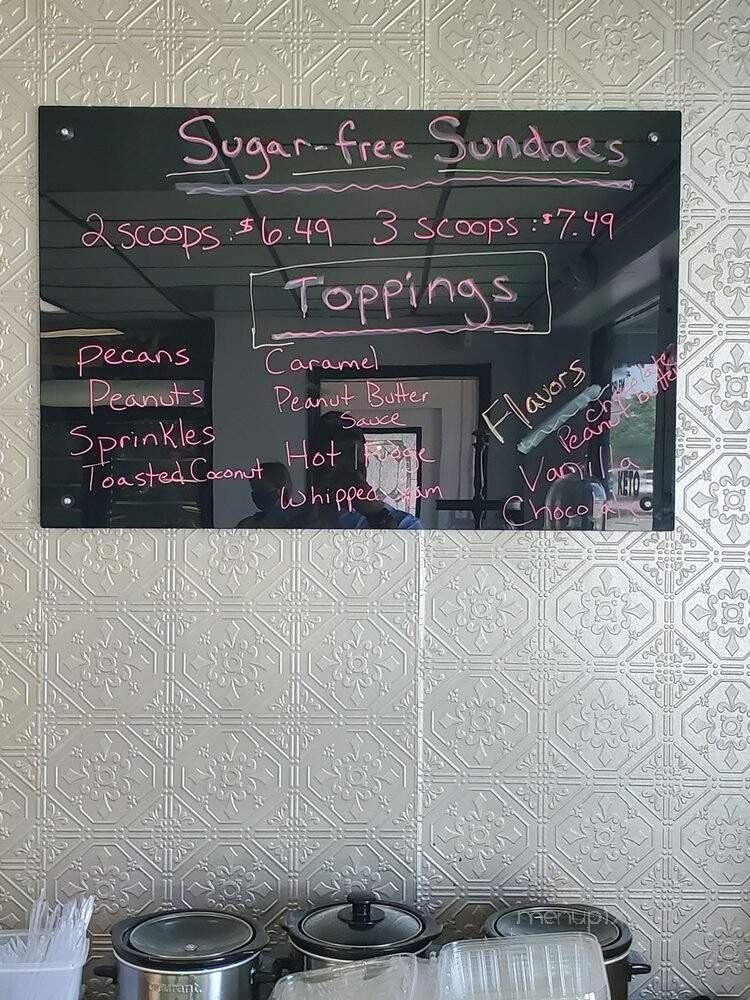 Sugar-free Sundaes
2 scoops: $6.49 3 scoops: $7.49
Toppings
Pecans
Peanuts
Sprinkles
Toasted Coconut
Caramel
Peanut Butter
Sauce
Hot Fudge
Whipped
Flavors
Chocolate
Peanut Butter
Vanilla
Chocolate
KETO